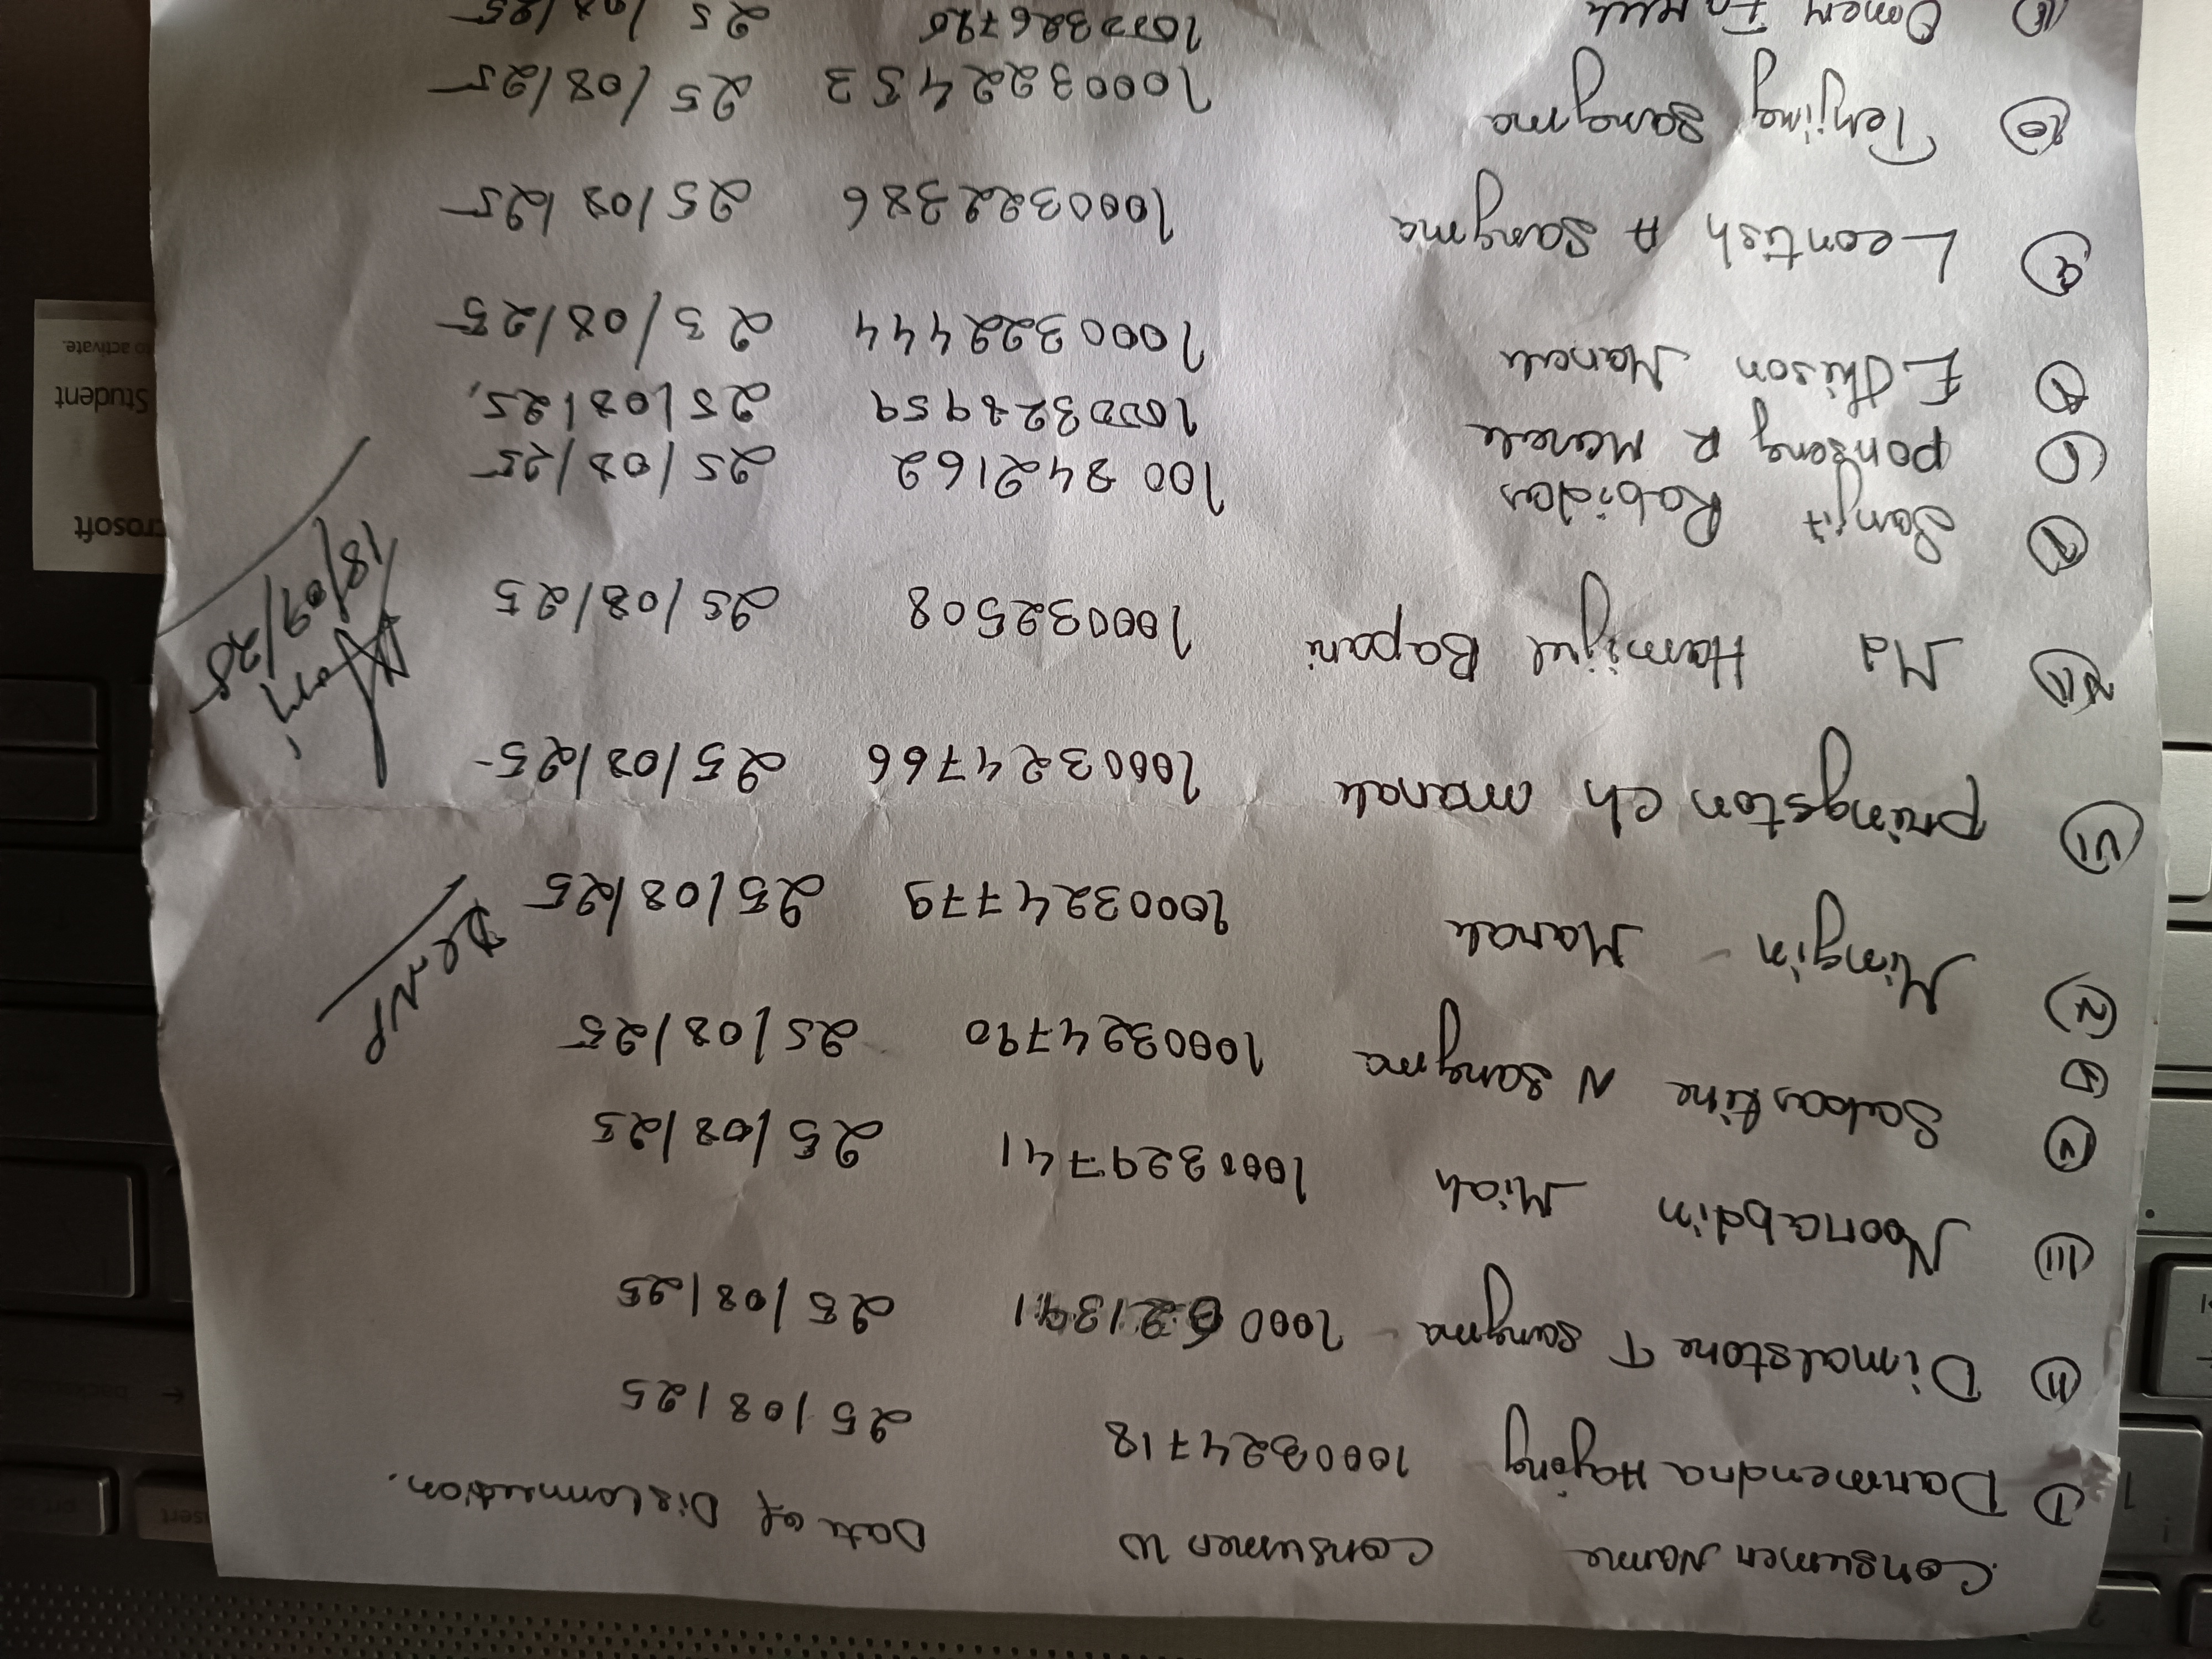 Consumer Name Consumer ID Date of Disconnection.
I Danmendra Hajong 1000324718 25/08/25
II Dimalstone T Sangma - 1000 25/08/25
III Noorabdin Miah 1000329741 25/08/25
V Sabastine N Sangma 1000324790 25/08/25
Mingin - Marak 1000324779 25/08/25
DCNP
VI Pringston Ch marak 1000324766 25/08/25-
Md Hamijul Bapari 100032508 25/08/25
18/09/25
Sanjit Rabidas 100342162 25/08/25
Ponseng R Marak 1000328959 25/08/25,
Edhison Marak 1000322444 25/08/25
9 Leontish A Sangma 1000322386 25/08/25
10 Tenjing Sangma 1000322453 25/08/25
11 1000326795 25/08/25
crosoft
Student
to activate.